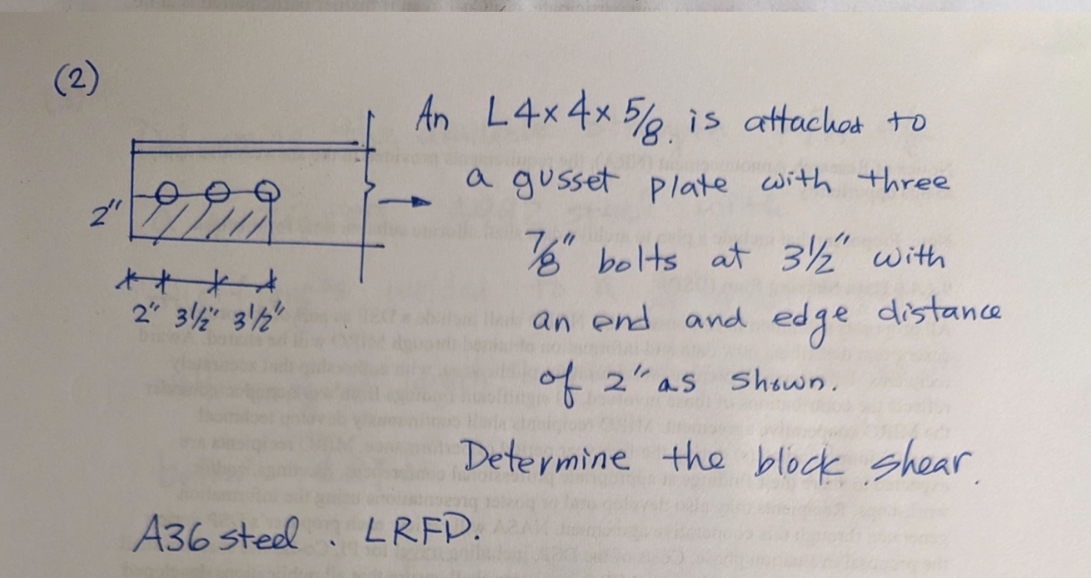 (2)
An L4x4x5/8. is attached to
a gusset plate with three
7/8" bolts at 3 1/2" with
an end and edge distance
of 2" as shown.
2"
2" 3 1/2" 3 1/2"
Determine the block shear.
A36 steel. LRFD.